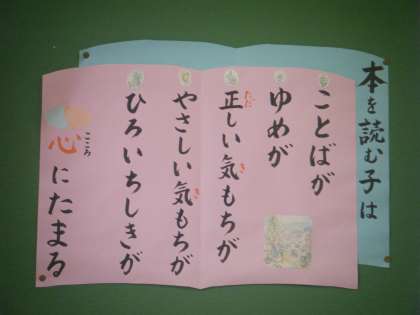 本を読む子は
ことばが
ゆめが
正しい気もちが
ただ
き
やさしい気もちが
き
ひろいちしきが
心にたまる
こころ